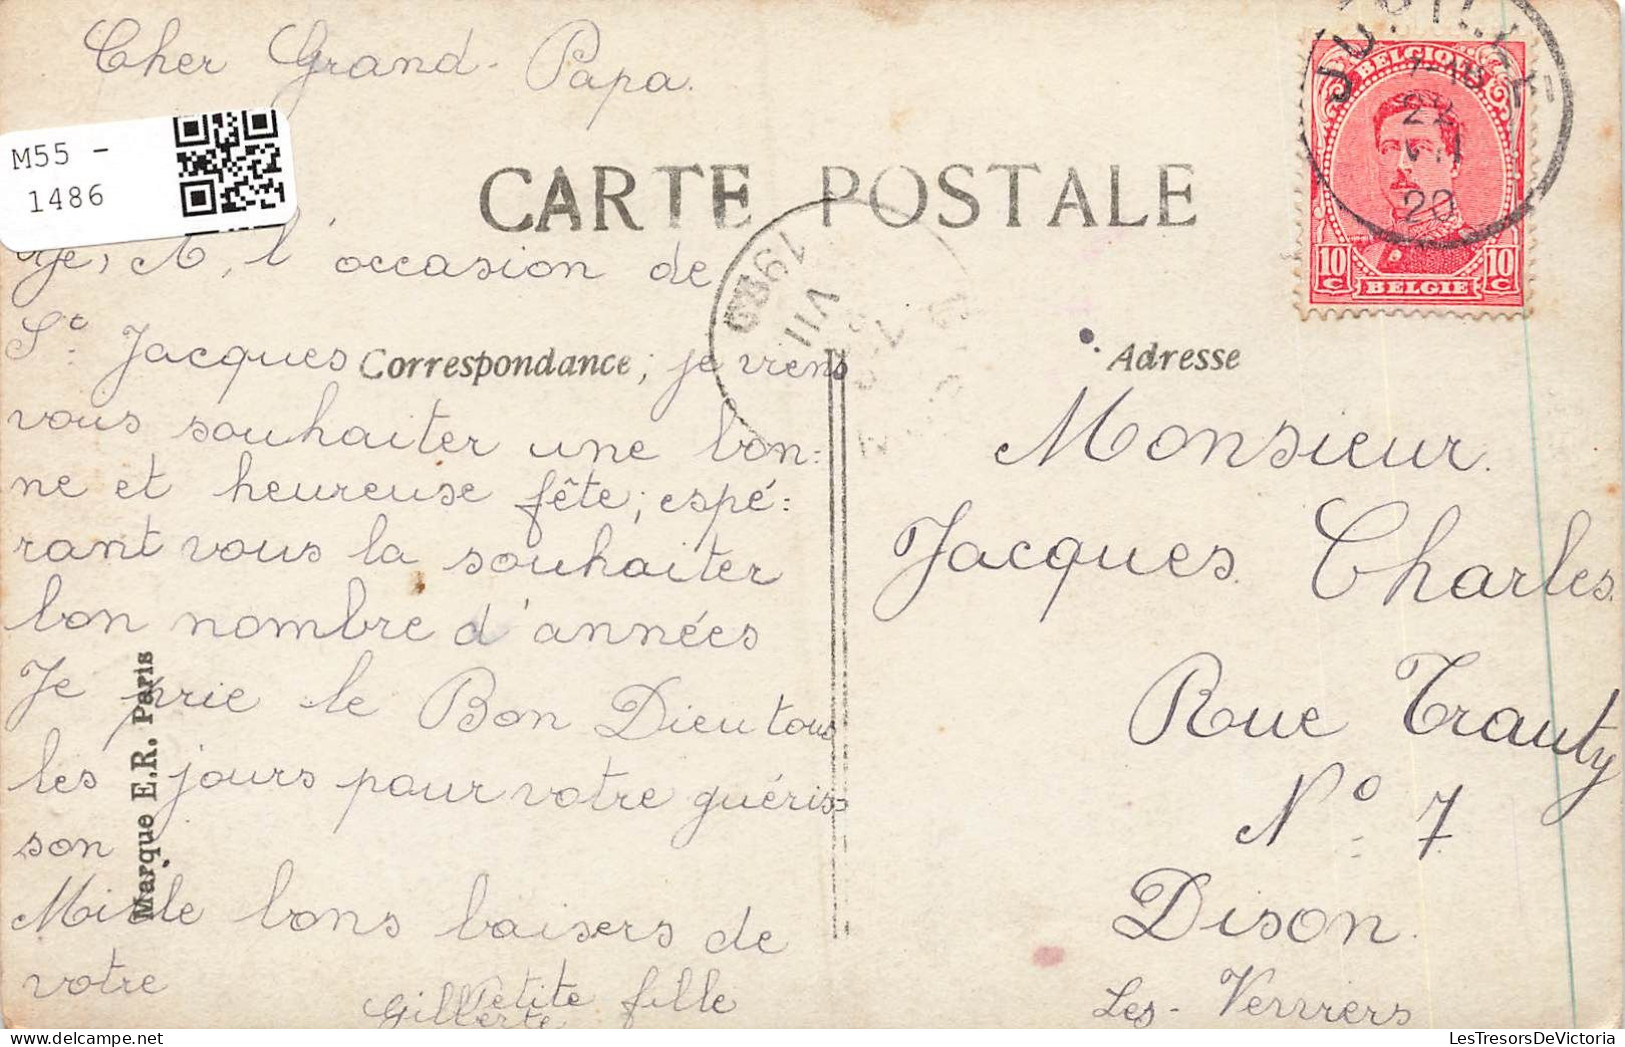 Cher Grand-Papa.
M55 -
1486
CARTE POSTALE
BELGIQUE
22
VII
20
10 c 10 c
BELGIE
Je, A, l'occasion de
St. Jacques ; je viens
Correspondance
vous souhaiter une bon=
ne et heureuse fête; espé=
rant vous la souhaiter
bon nombre d'années
Je prie le Bon Dieu tous
les jours pour votre guéris=
son
Mille bons baisers de
votre
Petite fille
Gillerte
Marque E.R. Paris
VII
Adresse
Monsieur.
Jacques Charles.
Rue Trauty
No 7
Dison.
Les-Verviers
LesTresorsDeVictoria.com